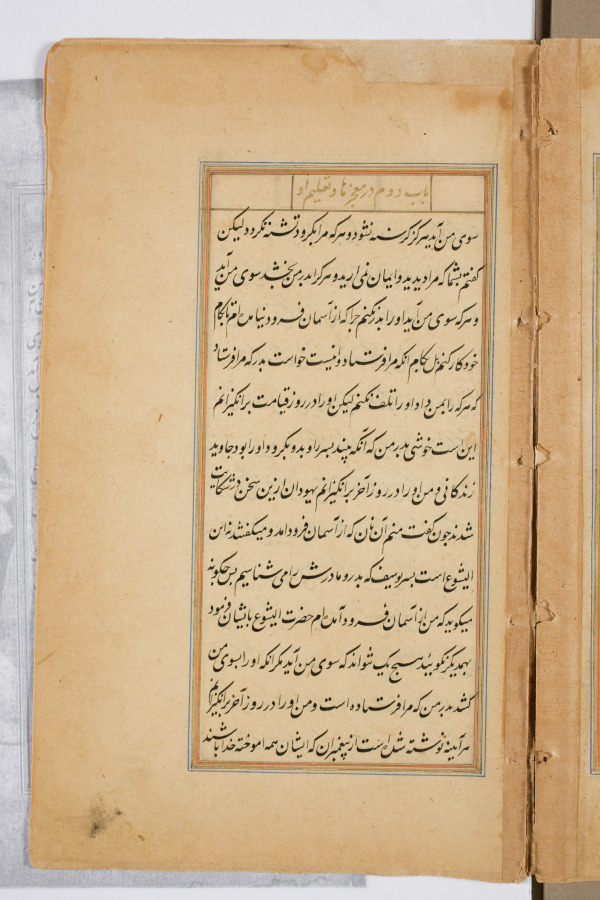 باب دوم در معجزها و تعلیم او
سوی من آید هرگز کرسنه نشود و هرکه مرا بکرود تشنه نکردد لیکن
کفتم بشما که مرا دیدید و ایمان نمی ارید و هرکرا پدر من بخشد سوی من آید
و هرکه سوی من آید او را بدر نکنم چرا که از آسمان فرود نیامده ام تا بکام
خود کار کنم بل بکام آنکه مرا فرستاد و اینست خواست پدر که مرا فرستاد
که هرکه را بمن داد او را تلف نکنم لیکن او را در روز قیامت برانکیزانم
این است خوشی پدر من که آنکه بیند پسر را و بدو بکرود او را بود جاوید
زندکانی و من او را در روز آخر برانکیزانم یهودان ازین سخن در شکایت
شدند چون کفت منم آن نان که از آسمان فرود امد و میکفتند نه این
ایشوع است پسر یوسف که پدر و مادرش را می شناسیم پس چکونه
میکوید که من از آسمان فرود آمده ام حضرت ایشوع بایشان فرمود
بهمدیکر نکوئید هیچ یک نتواند که سوی من آید مکر انکه او را بسوی من
کشد پدر من که مرا فرستاده است و من او را در روز آخر برانکیزانم
هرآینه نوشته شده است از پیغمبران که ایشان همه اموخته خدا باشند